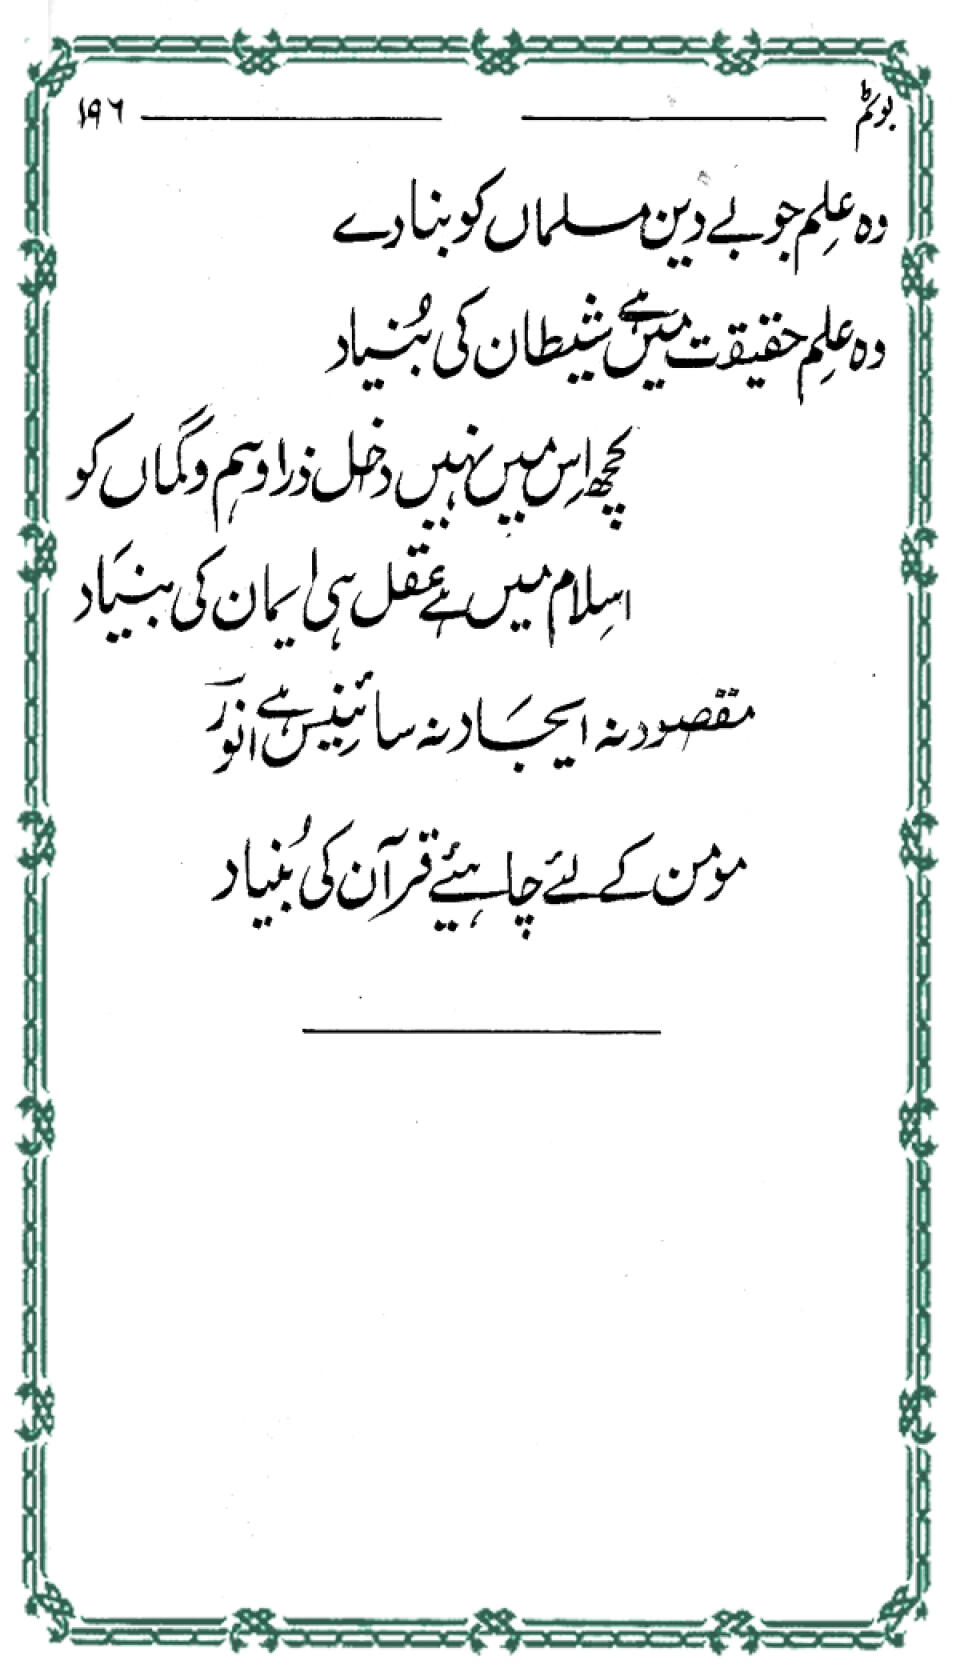 بوٹم ۱۹۶
وہ علِم جو بے دین مسلماں کو بنا دے
وہ علِم حقیقت میں ہے شیطان کی بُنیاد
کچھ اِس میں نہیں دخل ذرا وہم و گماں کو
اسِلام میں ہے عقل ہی ایمان کی بنیَاد
مقصود نہ ایجَاد نہ سائِنیس ہے انورؔ
مومن کے لئے چاہئیے قرآن کی بُنیاد